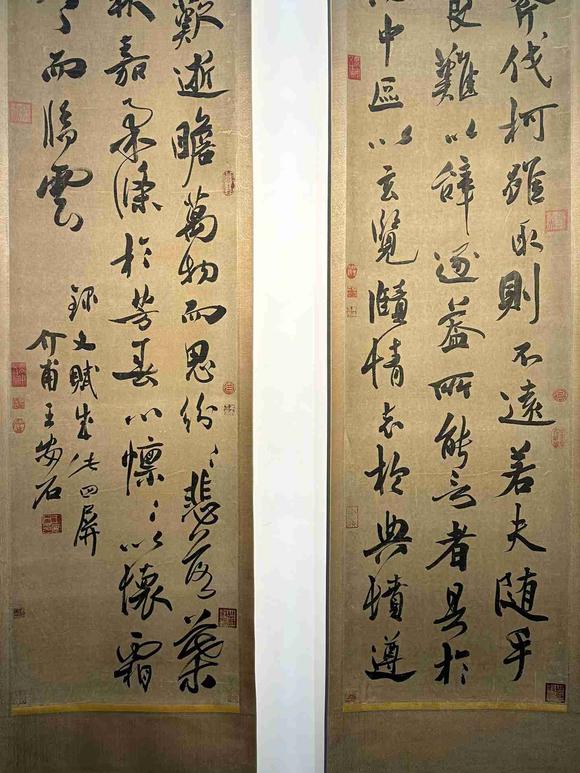 伐柯雖取則不遠若夫随手
良難以辭逮盖所能言者具於
中區以玄覽頤情志於典墳遵
歎逝瞻萬物而思紛〻悲落葉
秋嘉柔條於芳春心懍〻以懷霜
而臨雲
錄文賦成此四屏
介甫王安石